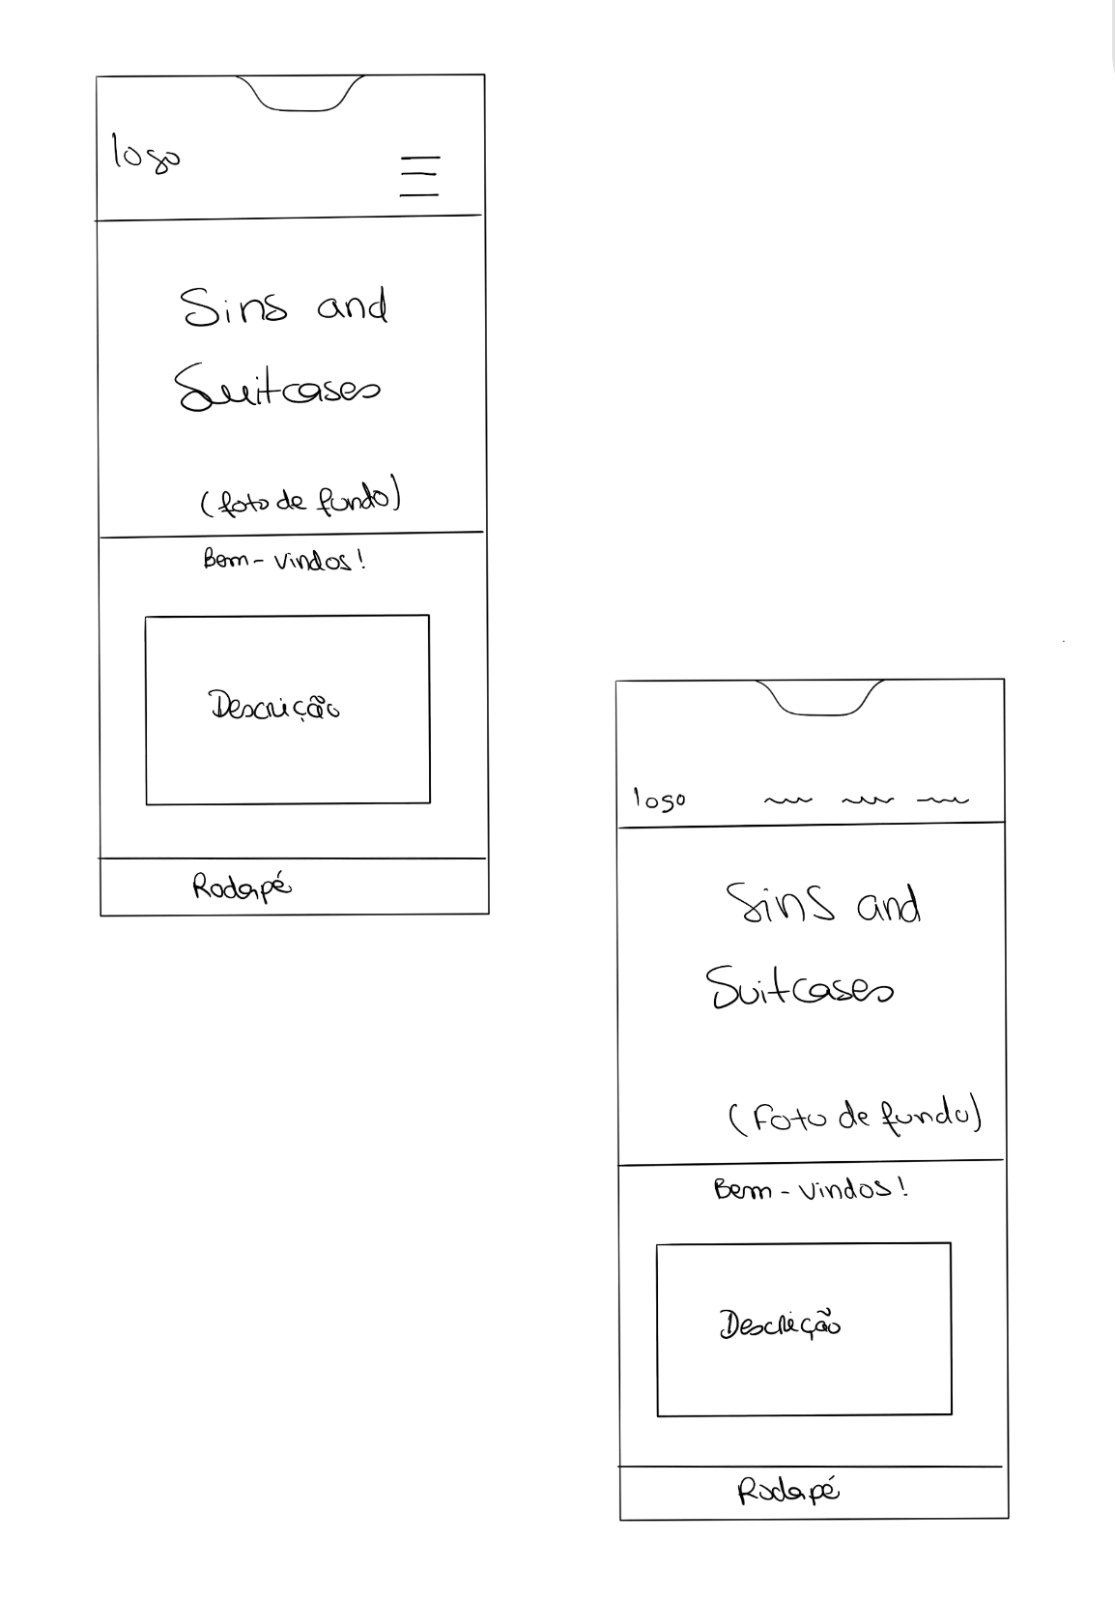 logo
Sins and
Suitcases
(foto de fundo)
Bem-vindos!
Descrição
Rodapé
logo
Sins and
Suitcases
(Foto de fundo)
Bem-vindos!
Descrição
Rodapé